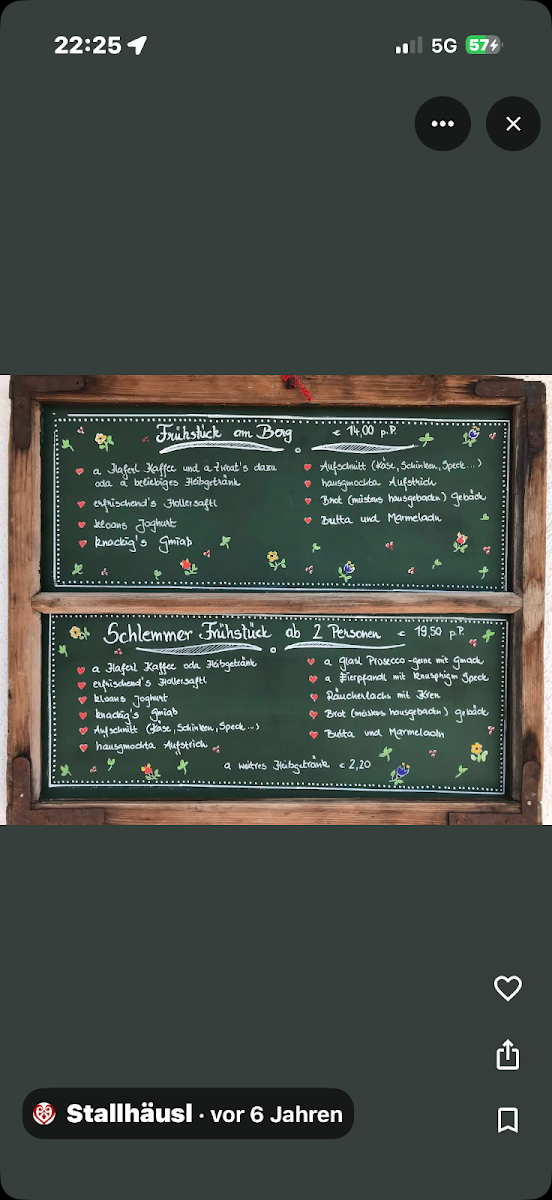 22:25
5G
57
Frühstück am Berg € 14,00 p.P.
a Haferl Kaffee und a Zwoat's dazu
oda a beliebiges Heißgetränk
erfrischend's Hollersaftl
kloans Joghurt
knackig's Gmiaß
Aufschnitt (Käse, Schinken, Speck...)
hausgmochta Aufstrich
Brot (mäistens hausgebackn) Gebäck
Butta und Marmeladn
Schlemmer Frühstück ab 2 Personen € 19,50 p.P.
a Haferl Kaffee oda Heißgetränk
erfrischend's Hollersaftl
kloans Joghurt
knackig's Gmiaß
Aufschnitt (Käse, Schinken, Speck...)
hausgmochta Aufstrich
a glasl Prosecco - gerne mit Gmack
a Eierpfandl mit knusprigm Speck
Räucherlachs mit Kren
Brot (meistens hausgebackn) gebäck
Butta und Marmeladn
a weitres Heißgetränk € 2,20
Stallhäusl · vor 6 Jahren